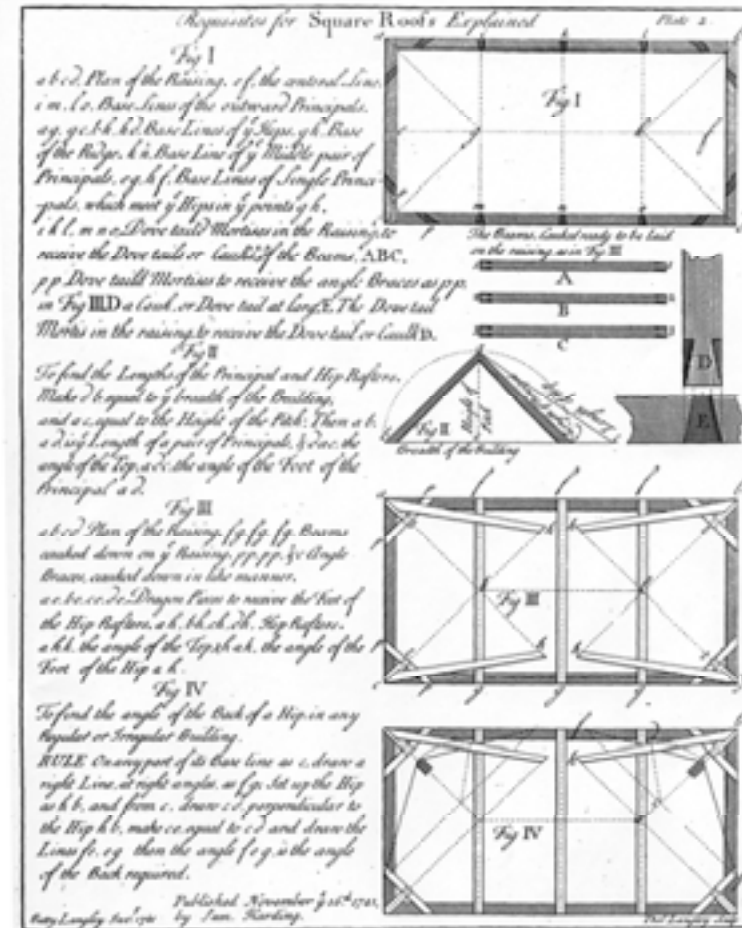 Requisites for Square Roofs Explained
Plate 2.
Fig I
a b c d. Plan of the Raising. e f. the centeral Line.
i m. l o. Base Lines of the outward Principals.
a g. g c. b h. h d. Base Lines of yͤ Hips. g h. Base
of the Ridge. k n. Base Line of yͤ Middle pair of
Principals, e g. h f. Base Lines of Single Princi-
-pals, which meet yͤ Hips in yͤ points g h.
i k l. m n o. Dove tail'd Mortises in the Raising, to
receive the Dove tails or of the Beams, ABC,
p p. Dove tail'd Mortises to receive the angle Braces as p p.
in Fig III, D a Cauk. or Dove tail at large, E. The Dove tail
Mortis in the raising, to receive the Dove tail or Caulk D.
Fig II
To find the Lengths of the Principal and Hip Rafters.
Make d b. equal to yͤ breadth of the Building,
and a c. equal to the Height of the Pitch: Then a b.
a d. is yͤ Length of a pair of Principals, & d a c. the
angle of the Top, a d c. the angle of the Foot of the
Principal a d.
Fig III
a b c d Plan of the Raising. f g. f g. f g. Beams
cauked down on yͤ Raising. p p. p p. &c Angle
Braces, cauked down in like manner.
a e. b e. c e. d e. Dragon Pieces to receive the Feet of
the Hip Rafters. a h. b h. c h. d h. Hip Rafters.
a h k. the angle of the Top, the angle of the
Foot of the Hip a h.
Fig IV
To find the angle of the Back of a Hip, in any
Regular or Irregular Building.
RULE On any part of its Base line as c, draw a
right Line, at right angles, as f g; Set up the Hip
as h b, and from c. draw c d. perpendicular to
the Hip h b, make c e. equal to c d and draw the
Lines f e. e g then the angle f e g. is the angle
of the Back required.
Published November yͤ 16th. 1741.
by Sam. Harding.
Batty Langley Invt. 1741
Fig I
The Beams, Cauked ready to be laid
on the raising, as in Fig III
A
B
C
D
E
Fig II
Height of Pitch
Breadth of the Building
Fig III
Fig IV
Thos. Langley Sculp